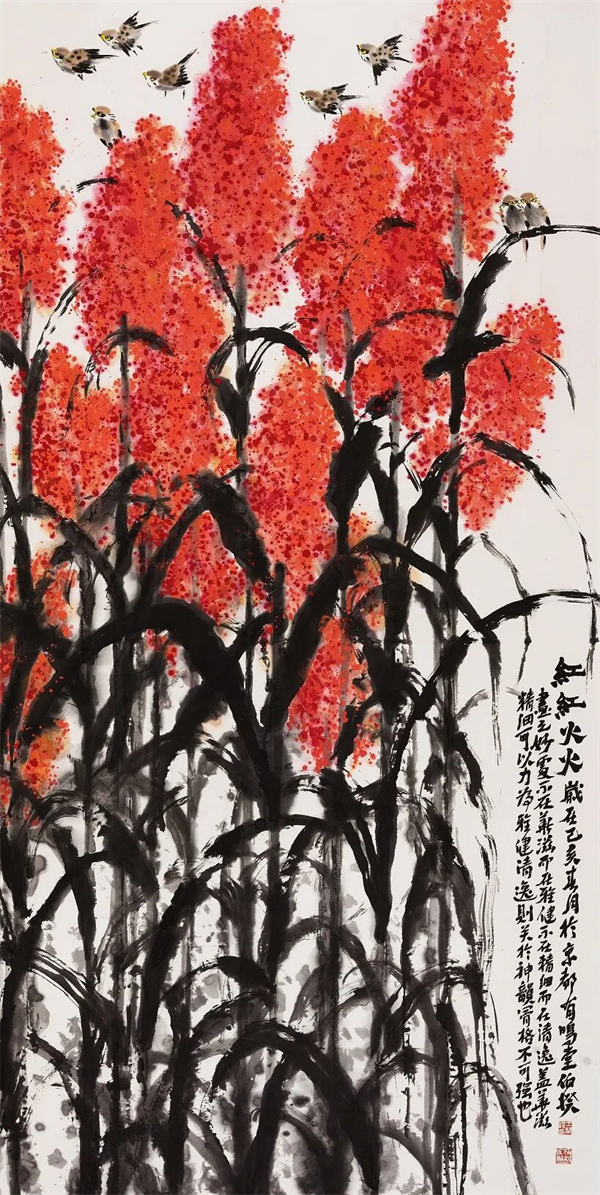 紅紅火火 歲在己亥春月於京都有鳴堂伯揆
畫之妙處不在華滋而在雅健不在精細而在清逸蓋華滋
精細可以力為雅健清逸則关於神韻骨格不可強也